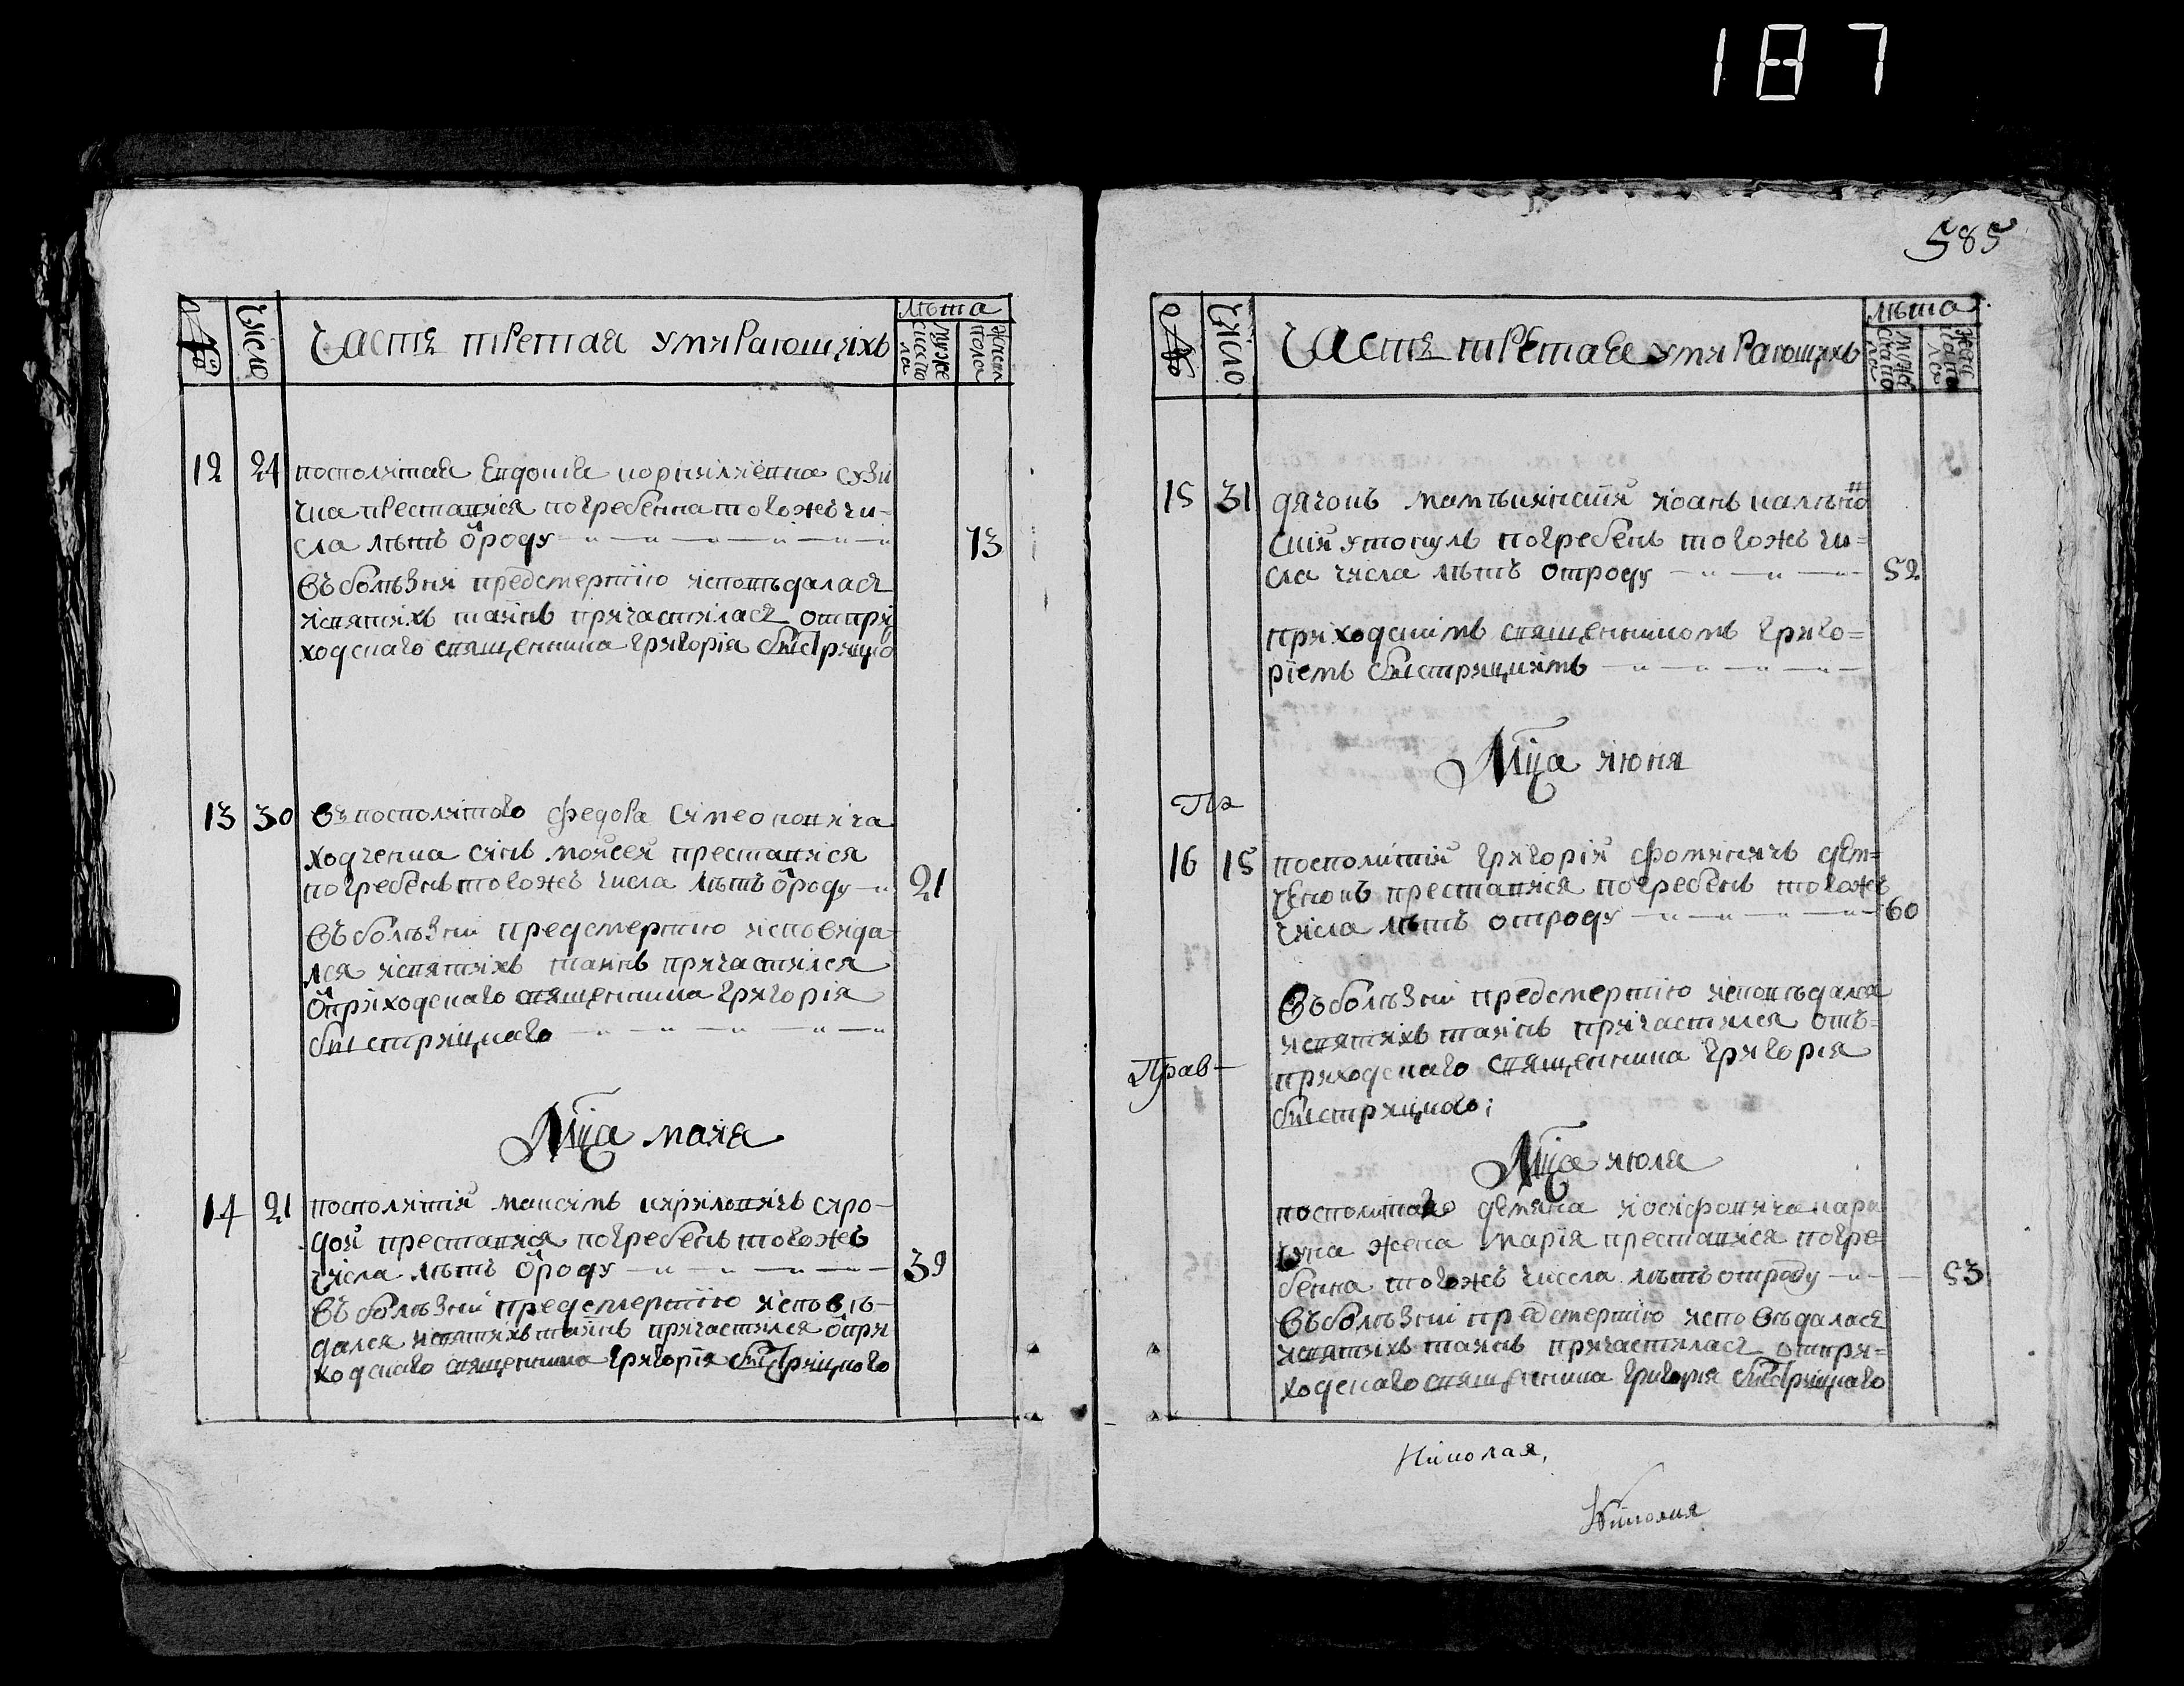 187
585
№
Число
Часть третая умирающихъ
лѣта
мужеска пола
женска пола
12 24 посполитая Евдокия корнилиевна
престависяпогребенна тогожъ чи-
сла лѣтъ ѿроду 73
въболѣзни предсмертию исповѣдалася
исвятихъ таинъ причастилася отпри
ходскаго священника григория бистрицко
13 30 въпосполитого федора симеоновича
ходченка синъ моисей преставися
погребенъ тогожъ числа лѣтъ ѿроду 21
въболѣзни предсмертию исповида
лся исвятихъ таинъ причастился
ѿприходскаго священника григория
бистрицкаго
Мца маия
14 21 посполитий максимъ кириловичъ сиро-
дой преставися погребенъ тогожъ
числа лѣтъ ѿроду 39
въболѣзни предсмертию исповѣ-
дался исвятихъ таинъ причастился ѿпри
ходскаго священника григория бистрицкого
№
Число
Часть третая умирающихъ
лѣта
15 31 дячокъ иоанъ
утонулъ погребенъ тогожъ чи-
сла числа лѣтъ отроду 52
приходскимъ священникомъ григо=
риемъ бистрицкимъ
Мца июня
16 15 посполитий григорий фоминичъ дем=
ченокъ преставися погребенъ тогожъ
числа лѣтъ отроду 60
въболѣзни предсмертию исповѣдался
исвятихъ таинъ причастился отъ=
Прав
приходскаго священника григория
бистрицкого;
Мца июля
посполитаго демяна иосифовича
жена мария преставися погре
бенна тогожъ числа лѣтъ отроду 53
въболѣзни предсмертию исповѣдалася
исвятихъ таинъ причастилася отпри=
ходскаго священника григория бистрицкаго
Николая,